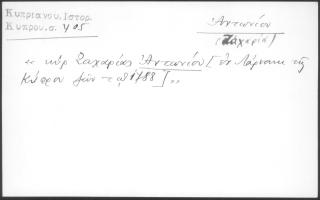 Κυπριανου, Ιστορ.
Κυπρου, σ. 405
Ἀντωνίου
(Ζαχαρία)
« κὺρ Ζαχαρίας Ἀντωνίου [ ἐν Λάρνακι τῆς
Κύπρου 1788 ] »